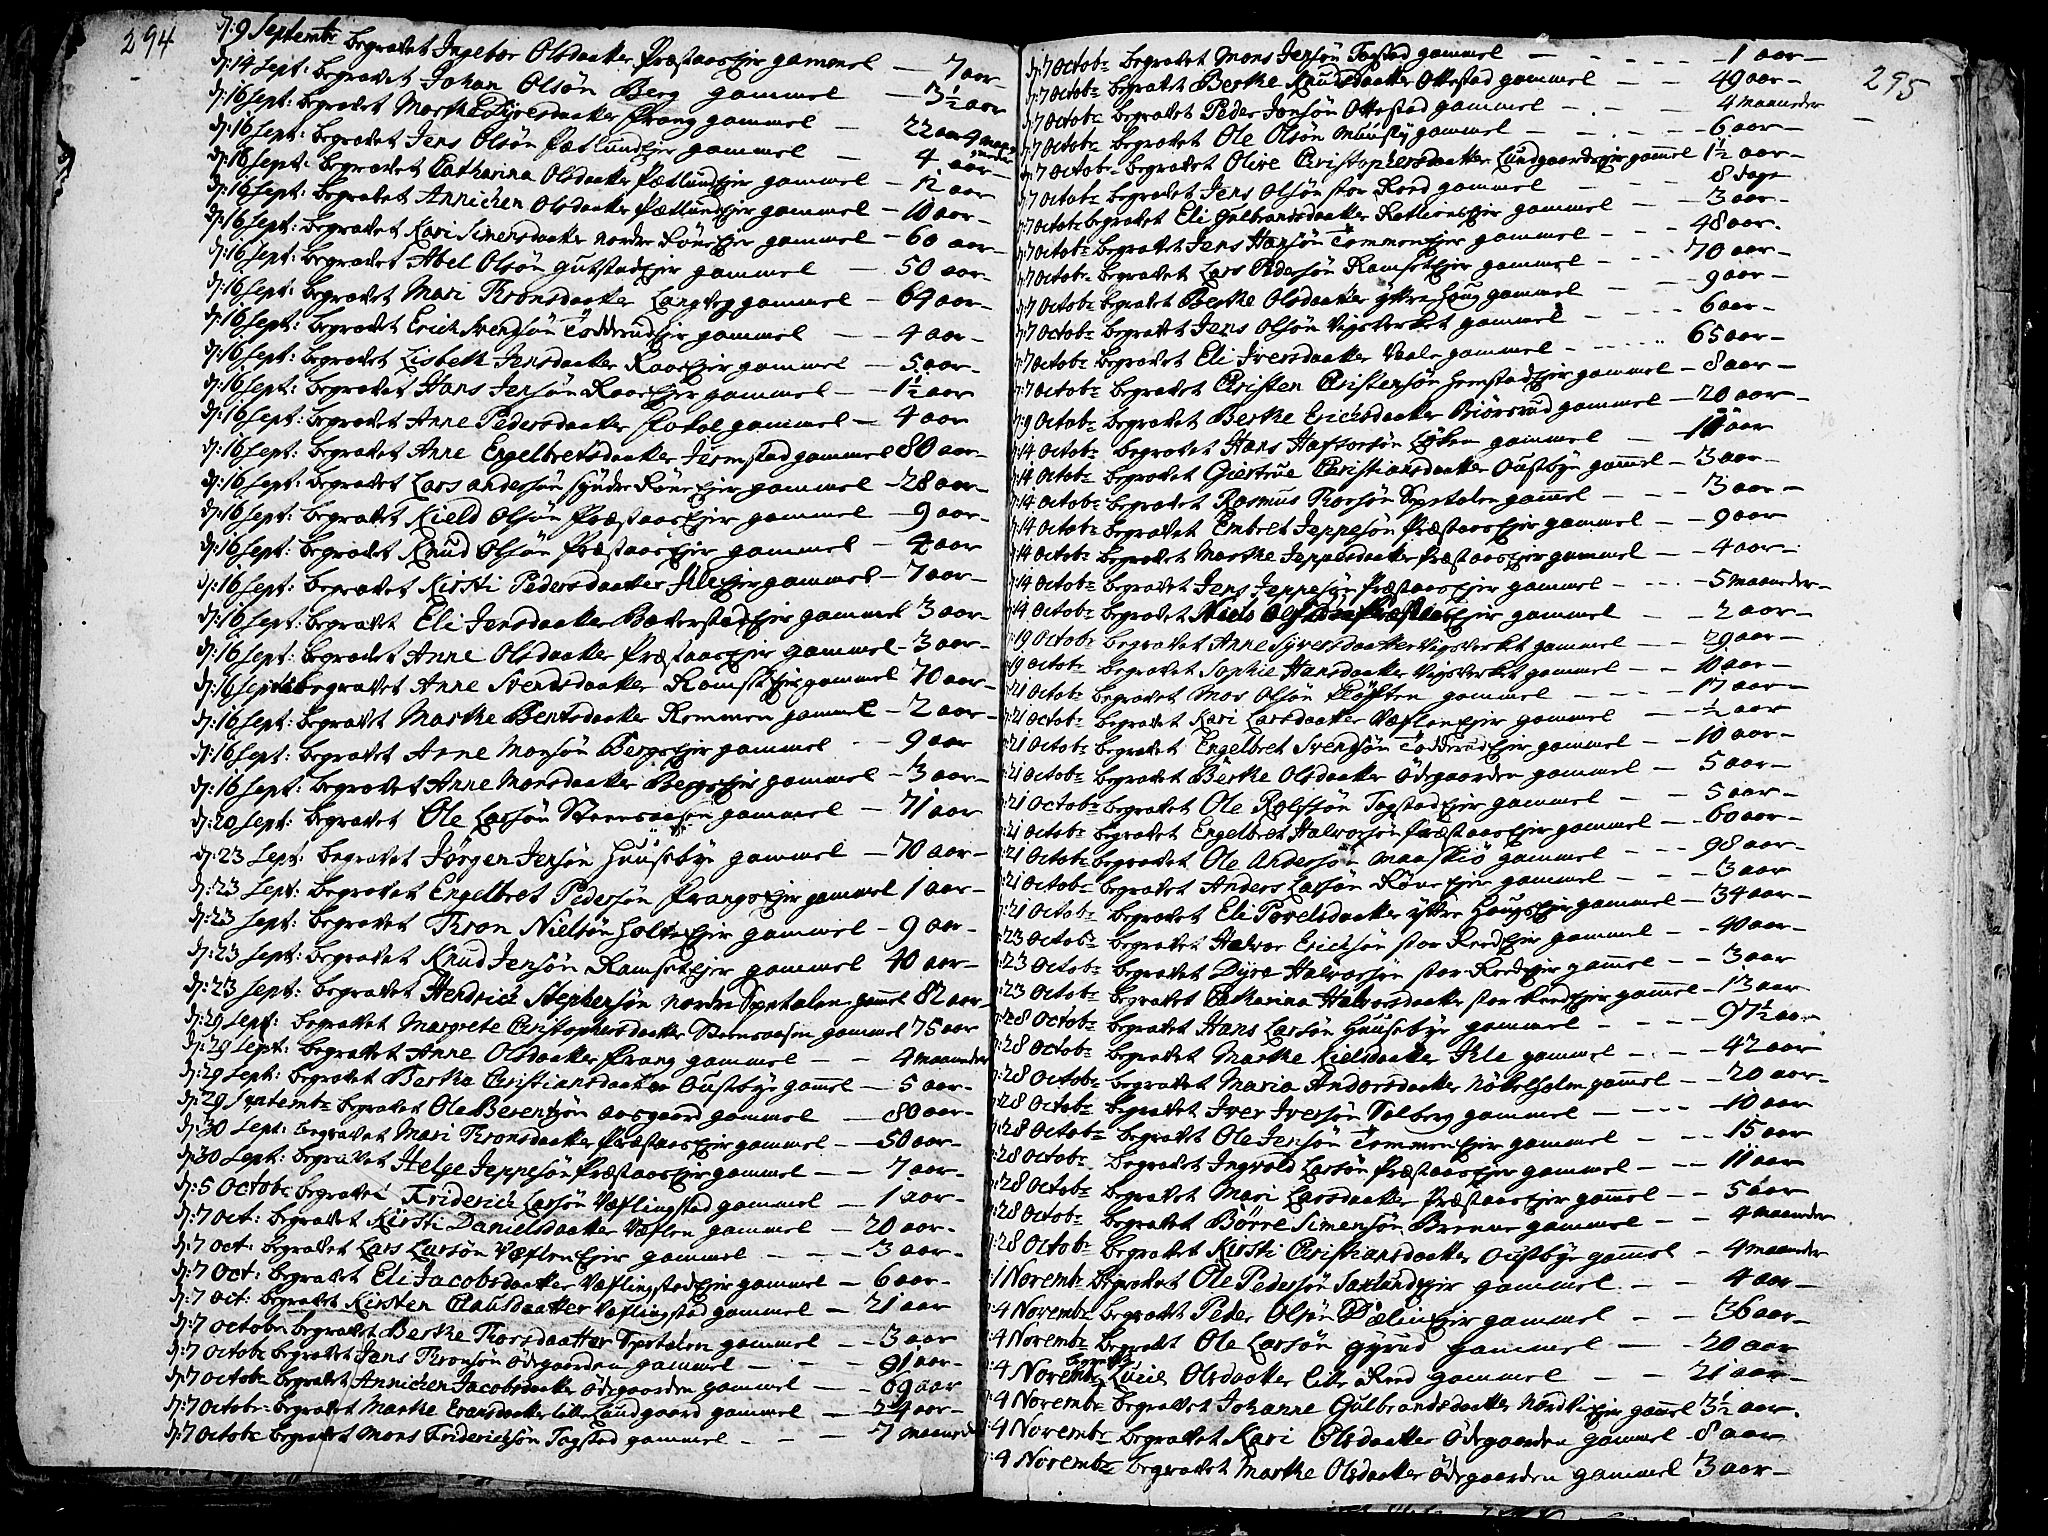 294
d: 9 Septembr begravet Ingebor Olsdaatter Præstaas Ejer gammel — 7 aar
d: 14 Sept: begravet Johan Olsøn Berg gammel — 3½ aar
d: 16 Sept: begravet Marthe Dyresdaatter Prang gammel — 22 aar 4 maaneder
d: 16 Sept: begravet Jens Olsøn Pætlund Ejer gammel — 4 aar
d: 16 Sept: begravet Catharina Olsdaatter Pætlund Ejer gammel — 12 aar
d: 16 Sept: begravet Annichen Olsdaatter Pætlund Ejer gammel — 10 aar
d: 16 Sept: begravet Kari Simensdaatter nordre Røne Ejer gammel — 60 aar
d: 16 Sept: begravet Abel Olsøn Gutstad Ejer gammel — 50 aar
d: 16 Sept: begravet Mari Thronsdaatter Langseg gammel — 69 aar
d: 16 Sept: begravet Erich Svendsøn Todderud Ejer gammel — 4 aar
d: 16 Sept: begravet Lisbeth Jensdaatter Raas Ejer gammel — 5 aar
d: 16 Sept: begravet Hans Jensøn Raas Ejer gammel — 1½ aar
d: 16 Sept: begravet Anne Pedersdaatter gammel — 4 aar
d: 16 Sept: begravet Anne Engelbretsdaatter Jemstad gammel 80 aar
d: 16 Sept: begravet Lars Andersøn syndre Røne Ejer gammel — 28 aar
d: 16 Sept: begravet Kield Olsøn Præstaas Ejer gammel — 9 aar
d: 16 Sept: begravet Knud Olsøn Præstaas Ejer gammel — 4 aar
d: 16 Sept: begravet Kirsti Pedersdaatter Ihle Ejer gammel — 7 aar
d: 16 Sept: begravet Eli Jensdaatter Baverstad Ejer gammel 3 aar
d: 16 Sept: begravet Anne Olsdaatter Præstaas Ejer gammel — 3 aar
d: 16 Sept: begravet Anne Svendsdaatter Ramset Ejer gammel 70 aar
d: 16 Sept: begravet Marthe Berntsdaatter Remmen gammel — 2 aar
d: 16 Sept: begravet Arne Monsøn Bergs Ejer gammel — 9 aar
d: 16 Sept: begravet Anne Monsdaatter Bergs Ejer gammel — 3 aar
d: 20 Sept: begravet Ole Larsøn Steensaasen gammel — 71 aar
d: 23 Sept: begravet Jørgen Jensøn Huuseby gammel — 70 aar
d: 23 Sept: begravet Engelbret Pedersøn Prangs Ejer gammel 1 aar
d: 23 Sept: begravet Thron Nielsøn Holte Ejer gammel — 9 aar
d: 23 Sept: begravet Knud Jensøn Ramset Ejer gammel 40 aar
d: 23 Sept: begravet Hendrich Stephensøn nordre Spetalen gammel 82 aar
d: 29 Sept: begravet Margrete Christophersdaatter Steensaasen gammel 75 aar
d: 29 Sept: begravet Anne Olsdaatter Prang gammel — — 4 maaneder
d: 29 Sept: begravet Bertha Christiansdaatter Oustbye gammel — 5 aar
d: 29 Septembr begravet Ole Berentzøn Aasgaard gammel — 80 aar
d: 30 Sept: begravet Mari Thronsdaatter Præstaas Ejer gammel — 50 aar
d: 30 Sept: begravet Helge Jeppesøn Præstaas Ejer gammel — — 7 aar
d: 5 Octobr begravet Friderich Larsøn Væflingstad gammel — 1 aar
d: 7 Oct: begravet Kirsti Danielsdaatter Væflen gammel — 20 aar
d: 7 Oct: begravet Lars Larsøn Væflen Ejer gammel — — 3 aar
d: 7 Oct: begravet Eli Jacobsdaatter Væflingstad Ejer gammel — 6 aar
d: 7 Oct: begravet Kirsten Clausdaatter Væflingstad gammel — 21 aar
d: 7 Octobr begravet Berthe Thorsdaatter Spetalen gammel — 3 aar
d: 7 Octobr begravet Jens Thronsøn Ødegaarden gammel — — 91 aar
d: 7 Octobr begravet Annichen Jacobsdaatter Ødegaarden gammel — — 69 aar
d: 7 Octobr begravet Marthe Evansdaatter lille Lundgaard gammel — 24 aar
d: 7 Octobr begravet Mons Friderichsøn Togstad gammel — — 7 maaneder
295
d: 7 Octobr begravet Mons Jensøn Togstad gammel — — 1 aar
d: 7 Octobr begravet Berthe Knudsdaatter Ottestad gammel — — 49 aar
d: 7 Octobr begravet Peder Jonsøn Ottestad gammel — — 4 maaneder
d: 7 Octobr begravet Ole Olsøn gammel — — 6 aar
d: 7 Octobr begravet Olive Christophersdaatter Lundgaards Ejer gammel 1½ aar
d: 7 Octobr begravet Jens Olsøn stor Reed gammel — — 8 dage
d: 7 Octobr begravet Eli Gulbrandsdaatter Ejer gammel — — 3 aar
d: 7 Octobr begravet Jens Hansøn Tommen Ejer gammel — — 48 aar
d: 7 Octobr begravet Lars Pedersøn Ramset Ejer gammel — — 70 aar
d: 7 Octobr begravet Berthe Olsdaatter yttre Houg gammel — — 9 aar
d: 7 Octobr begravet Jens Olsøn Vigsverket gammel — — 6 aar
d: 7 Octobr begravet Eli Iversdaatter Vaale gammel — — 65 aar
d: 7 Octobr begravet Christen Christensøn Hemstad Ejer gammel — 8 aar
d: 9 Octobr begravet Berthe Erichsdaatter Biørnrud gammel — 20 aar
d: 14 Octobr begravet Hans Hafvorsøn Løken gammel — 10 aar
d: 14 Octobr begravet Giertrue Christiansdaatter Oustbye gammel — 3 aar
d: 14 Octobr begravet Rasmus Thorsøn Spetalen gammel — — 3 aar
d: 14 Octobr begravet Embret Jeppesøn Præstaas Ejer gammel — — 9 aar
d: 14 Octobr begravet Marthe Jeppesdaatter Præstaas Ejer gammel — — 4 aar
d: 14 Octobr begravet Jens Jeppesøn Præstaas Ejer gammel — — 5 maaneder
d: 14 Octobr begravet Niels Præstaas Ejer gammel — — 2 aar
d: 19 Octobr begravet Anne Syversdaatter Vigsverket gammel — — 29 aar
d: 19 Octobr begravet Sophie Hansdaatter Vigsverket gammel — — 10 aar
d: 21 Octobr begravet Mor Olsøn Kløften gammel — — 17 aar
d: 21 Octobr begravet Kari Larsdaatter Væflen Ejer gammel — — ½ aar
d: 21 Octobr begravet Engelbret Svendsøn Todderud Ejer gammel — — 10 aar
d: 21 Octobr begravet Berthe Olsdaatter Ødegaarden gammel — — 5 aar
d: 21 Octobr begravet Ole Rolfsøn Togstad Ejer gammel — — 5 aar
d: 21 Octobr begravet Engelbret Halvorsøn Præstaas Ejer gammel — — 60 aar
d: 21 Octobr begravet Ole Andersøn gammel — — 98 aar
d: 21 Octobr begravet Anders Larsøn Røne Ejer gammel — — 3 aar
d: 21 Octobr begravet Eli Povelsdaatter yttre Hougs Ejer gammel — 34 aar
d: 23 Octobr begravet Halvor Erichsøn stor Reed Ejer gammel — — 40 aar
d: 23 Octobr begravet Dyre Halvorsøn stor Reed Ejer gammel — — 3 aar
d: 23 Octobr begravet Catharina Halvorsdaatter stor Reed Ejer gammel — 13 aar
d: 28 Octobr begravet Hans Larsøn Huusebye gammel — — 97½ aar
d: 28 Octobr begravet Marthe Kielsdaatter Ihle gammel — — 42 aar
d: 28 Octobr begravet Maria Andersdaatter Nøkleholm gammel — — 20 aar
d: 28 Octobr begravet Iver Iversøn Solberg gammel — — 10 aar
d: 28 Octobr begravet Ole Jensøn Tommen Ejer gammel — — 15 aar
d: 28 Octobr begravet Ingvold Larsøn Præstaas Ejer gammel — — 11 aar
d: 28 Octobr begravet Mari Larsdaatter Præstaas Ejer gammel — — 5 aar
d: 28 Octobr begravet Børre Simensøn Brenne gammel — — 4 maaneder
d: 28 Octobr begravet Kirsti Christiansdaatter Oustbye gammel — 4 maaneder
d: 1 Novembr begravet Ole Pedersøn Saxlund Ejer gammel — — 4 aar
d: 4 Novembr begravet Peder Olsøn Dælin Ejer gammel — — 36 aar
d: 4 Novembr begravet Ole Larsøn Gyrud gammel — 20 aar
d: 4 Novembr begravet Lucie Olsdaatter lille Reed gammel — — 21 aar
d: 4 Novembr begravet Johanne Gulbrandsdaatter Nordli Ejer gammel 3½ aar
d: 4 Novembr begravet Kari Olsdaatter Ødegaarden gammel 8 aar
d: 4 Novembr begravet Marthe Olsdaatter Ødegaarden gammel 3 aar